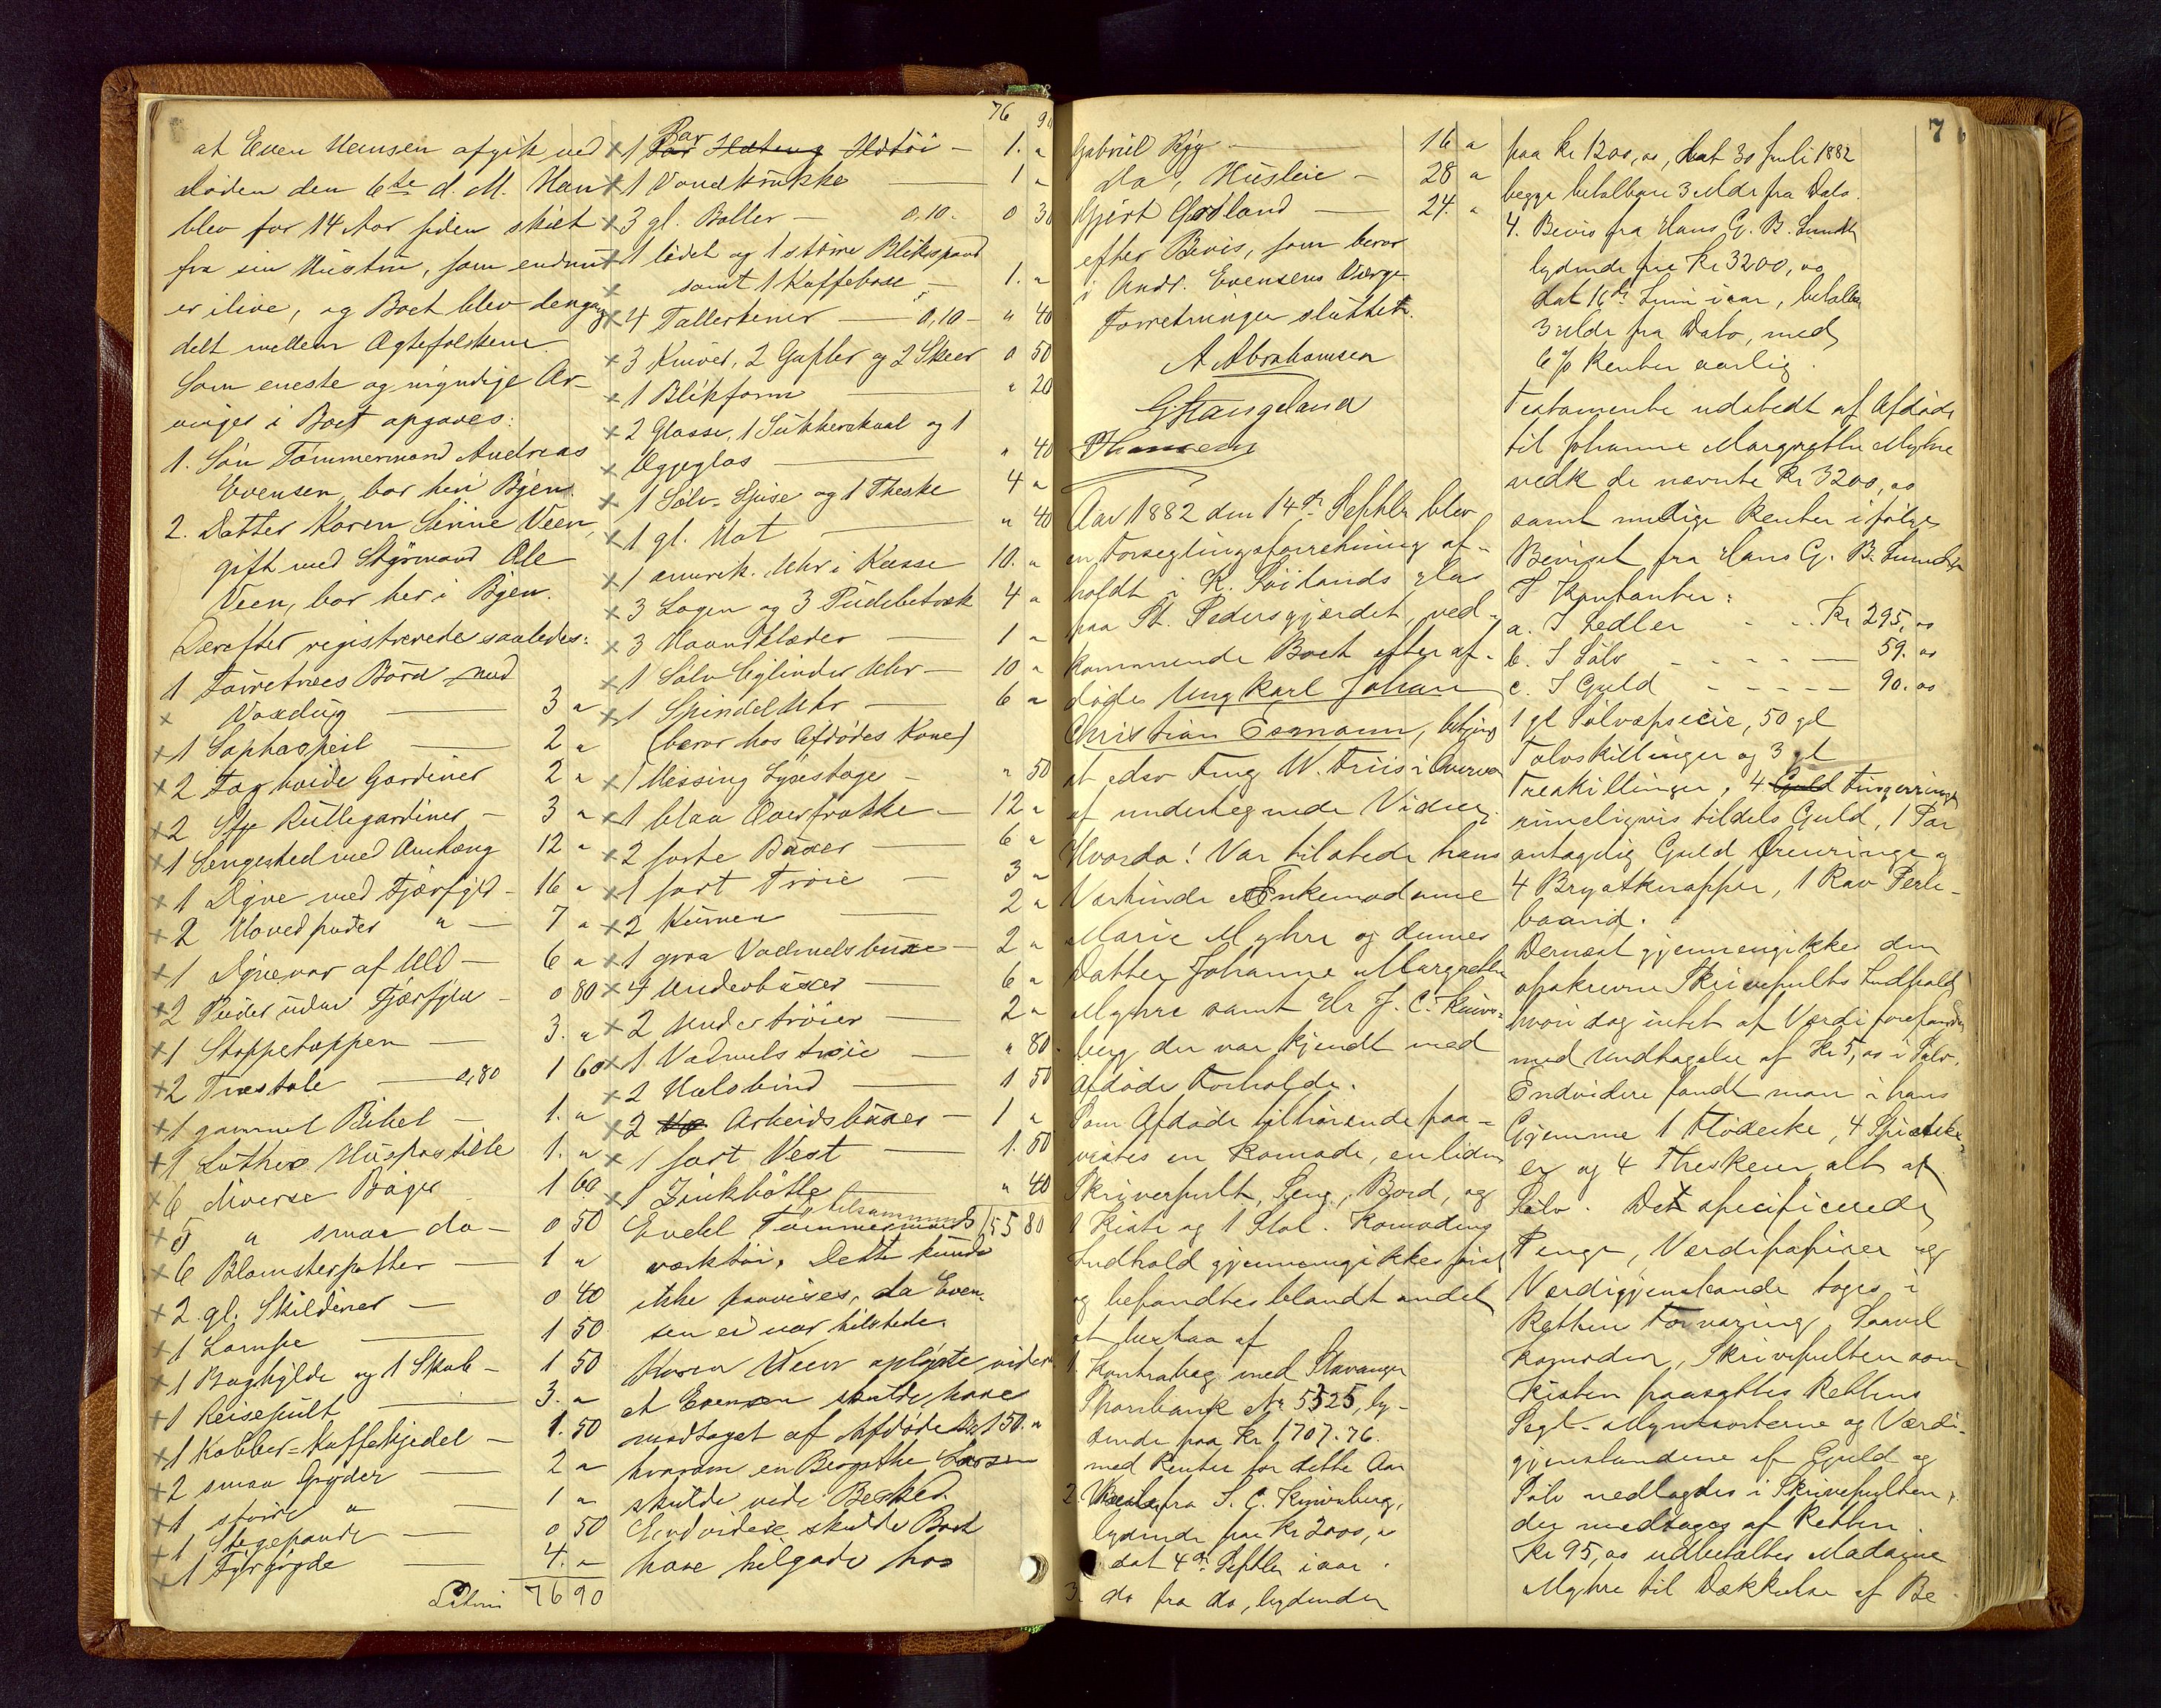 at Even Hansen afgik ved
Døden den 6te d. M. Han
blev for 14 Aar siden skilt
fra sin Hustru, som endnu
er ilive, og Boet blev dengang
delt mellem Ægtefolkene.
Som eneste og myndige Ar-
vinger i Boet opgaves:
1. Søn Tømmermand Andreas
Evensen, bor her i Byen.
2. Datter Karen Serine Veen,
gift med Styrmand Ole
Veen, bor her i Byen.
Derefter registreredes saaledes:
1 Fyrretræes Bord med
Voxdug 3 "
1 Sophaspeil 2 "
2 Fag hvide Gardiner 2 "
2 Stk Rullegardiner - 3 "
1 Sengested med Omhæng 12 "
1 Dyne med Fjærfyld - 16 "
2 Hovedpuder " - 7 "
1 Dynevar af Uld - 6 "
2 Puder uden Fjærfyld - 0 80
1 Stoppetæppen - 3. "
2 Træstole 0,80 1 60
1 gammel Bibel - 1. "
1 Luthers Huspostille 1. "
6 diverse Bøger 1 60
5 " smaa do - 0 50
6 Blomsterpotter 1 "
2 gl. Skilderier - 0 40
1 Lampe 1 50
1 Boghylde og 1 Skab - 1 50
1 Reisepult 3. "
1 Kobber-Kaffekjedel - 1. 50
2 smaa Gryder 2 "
1 større " 1 "
1 Stegepande 0 50
1 Fyrgryde 4. "
Latus 76 90
76 90
1 Par Hatøi - 1. "
1 Vandkrukke 1 "
3 gl. Boller - 0.10. 0 30
1 lidet og 1 større Blikspand
samt 1 Kaffebøsse 1. "
4 Tallerkener 0,10 - " 40
3 Knive, 2 Gafler og 2 Skeer 0 50
1 Blikform " 20
2 Glasse, 1 Sukkerskaal og 1
Æggeglas " 40
1 Sølv-Spise og 1 Theske 4 "
1 gl. Hat " 40
1 amerik. Uhr i Kasse 10. "
3 Lagen og 3 Pudebetræk 4 "
3 Haandklæder 1 "
1 Sølv Cylinder Uhr - 10 "
1 Spindel Uhr 6 "
(beror hos Afdødes Kone)
1 Messing Lysestage - " 50
1 blaa Overfrakke - 12 "
2 sorte Buxer 6 "
1 sort Trøie - 3 "
2 2 "
1 graa Vadmelsbuxe - 2 "
4 Underbuxer 6 "
2 Undertrøier 2 "
1 Vadmels trøie " 80
2 Halsbind 1 50
2 Arbeidsbuxer - 1 "
1 sort Vest 1. 50
1 Zinkbøtte " 40
tilsammen 155 80
En del Tømmermands
værktøi. Dette kunde
ikke paavises, da Even-
sen ei var tilstede.
Karen Veen oplyste videre
at Evensen skulde have
modtaget af Afdøde Kr 150. "
hvorom en Bergithe Larsen
skulde vide Besked.
Endvidere skulde Boet
have tilgode hos
Gabriel Høg 16 "
Do, Husleie - 28 "
Gjert Gosland 24. "
efter Bevis, som beror
i Andr. Evensens Værge.
Forretningen sluttet.
A. Abrahamsen
G. Stangeland
Aar 1882 den 14de Septbr blev
en Forseglingsforretning af-
holdt i K. Søilands Hus
paa St. Pedersgjærdet, ved-
kommende Boet efter af-
døde Ungkarl Johan
Christian Esmann, betjent
at edsv Fmg W. Friis i Overvær
af undertegnede Vidner.
Hvorda! Var tilstede hans
Værtinde Enkemadame
Marie Myhre og dennes
Datter Johanne Margrethe
Myhre samt Hr J. C. Knivs-
berg der var kjendt med
Afdødes Forholde.
Som Afdøde tilhørende paa-
vistes en Komode, en liden
Skriverpult, Seng, Bord, og
1 Kiste og 1 Stol. Komodens
Indhold gjennemgikkes først
og befandtes blandt andet
at bestaa af
1. Kontrabog med Stavanger
Sparebank No 5525, ly-
dende paa Kr 1707.76.
med Renter for dette Aar
2. fra J. C. Knivsberg,
lydende paa Kr 2000, "
dat 4de Septbr iaar.
3. do fra do, lydende
7
paa Kr 1200,00, dat 30 Juli 1882
begge betalbare 3 Mdr fra Dato.
4. Bevis fra Hans G. B. Sundt
lydende paa Kr 3200, 00
dat 16de Juni iaar, betalbar
3 Mdr fra Dato, med
6 % Renter aarlig.
Testamente udstedt af Afdøde
til Johanne Margrethe Myhre
vedk de nævnte Kr 3200,00
samt mulige Renter ifølge
Beviset fra Hans G. B. Sundt
I Kontanter:
a. I Sedler Kr 295,00
b. I Sølv 59.00
c. I Guld 90.00
1 gl Sølvspecie, 50 gl
Tolvskillinger og 3 gl
Treskillinger, 4 Guld Fingerringe
rimeligvis tildels Guld, 1 Par
antagelig Guld Ørenringe og
4 Brystknapper, 1 Rav Perle-
baand.
Dernæst gjennemgikkes den
opskrevne Skrivepults Indhold
hvori dog intet af Værdi forefandtes
med Undtagelse af Kr 5,00 i Sølv.
Endvidere fandt man i hans
Gjemme 1 Flødeske, 4 Spiseske-
er og 4 Theskeer alt af
Sølv. Det specificerede
Penge, Værdipapirer og
Værdigjenstande toges i
Rettens Forvaring. Saavel
Komoden, Skrivepulten som
Kisten paasattes Rettens
Segl. Myntsorterne og Værdi-
gjenstandene af Guld og
Sølv nedlagdes i Skrivepulten,
der medtoges af Retten.
Kr 95,00 udbetaltes Madame
Myhre til Dækkelse af Be